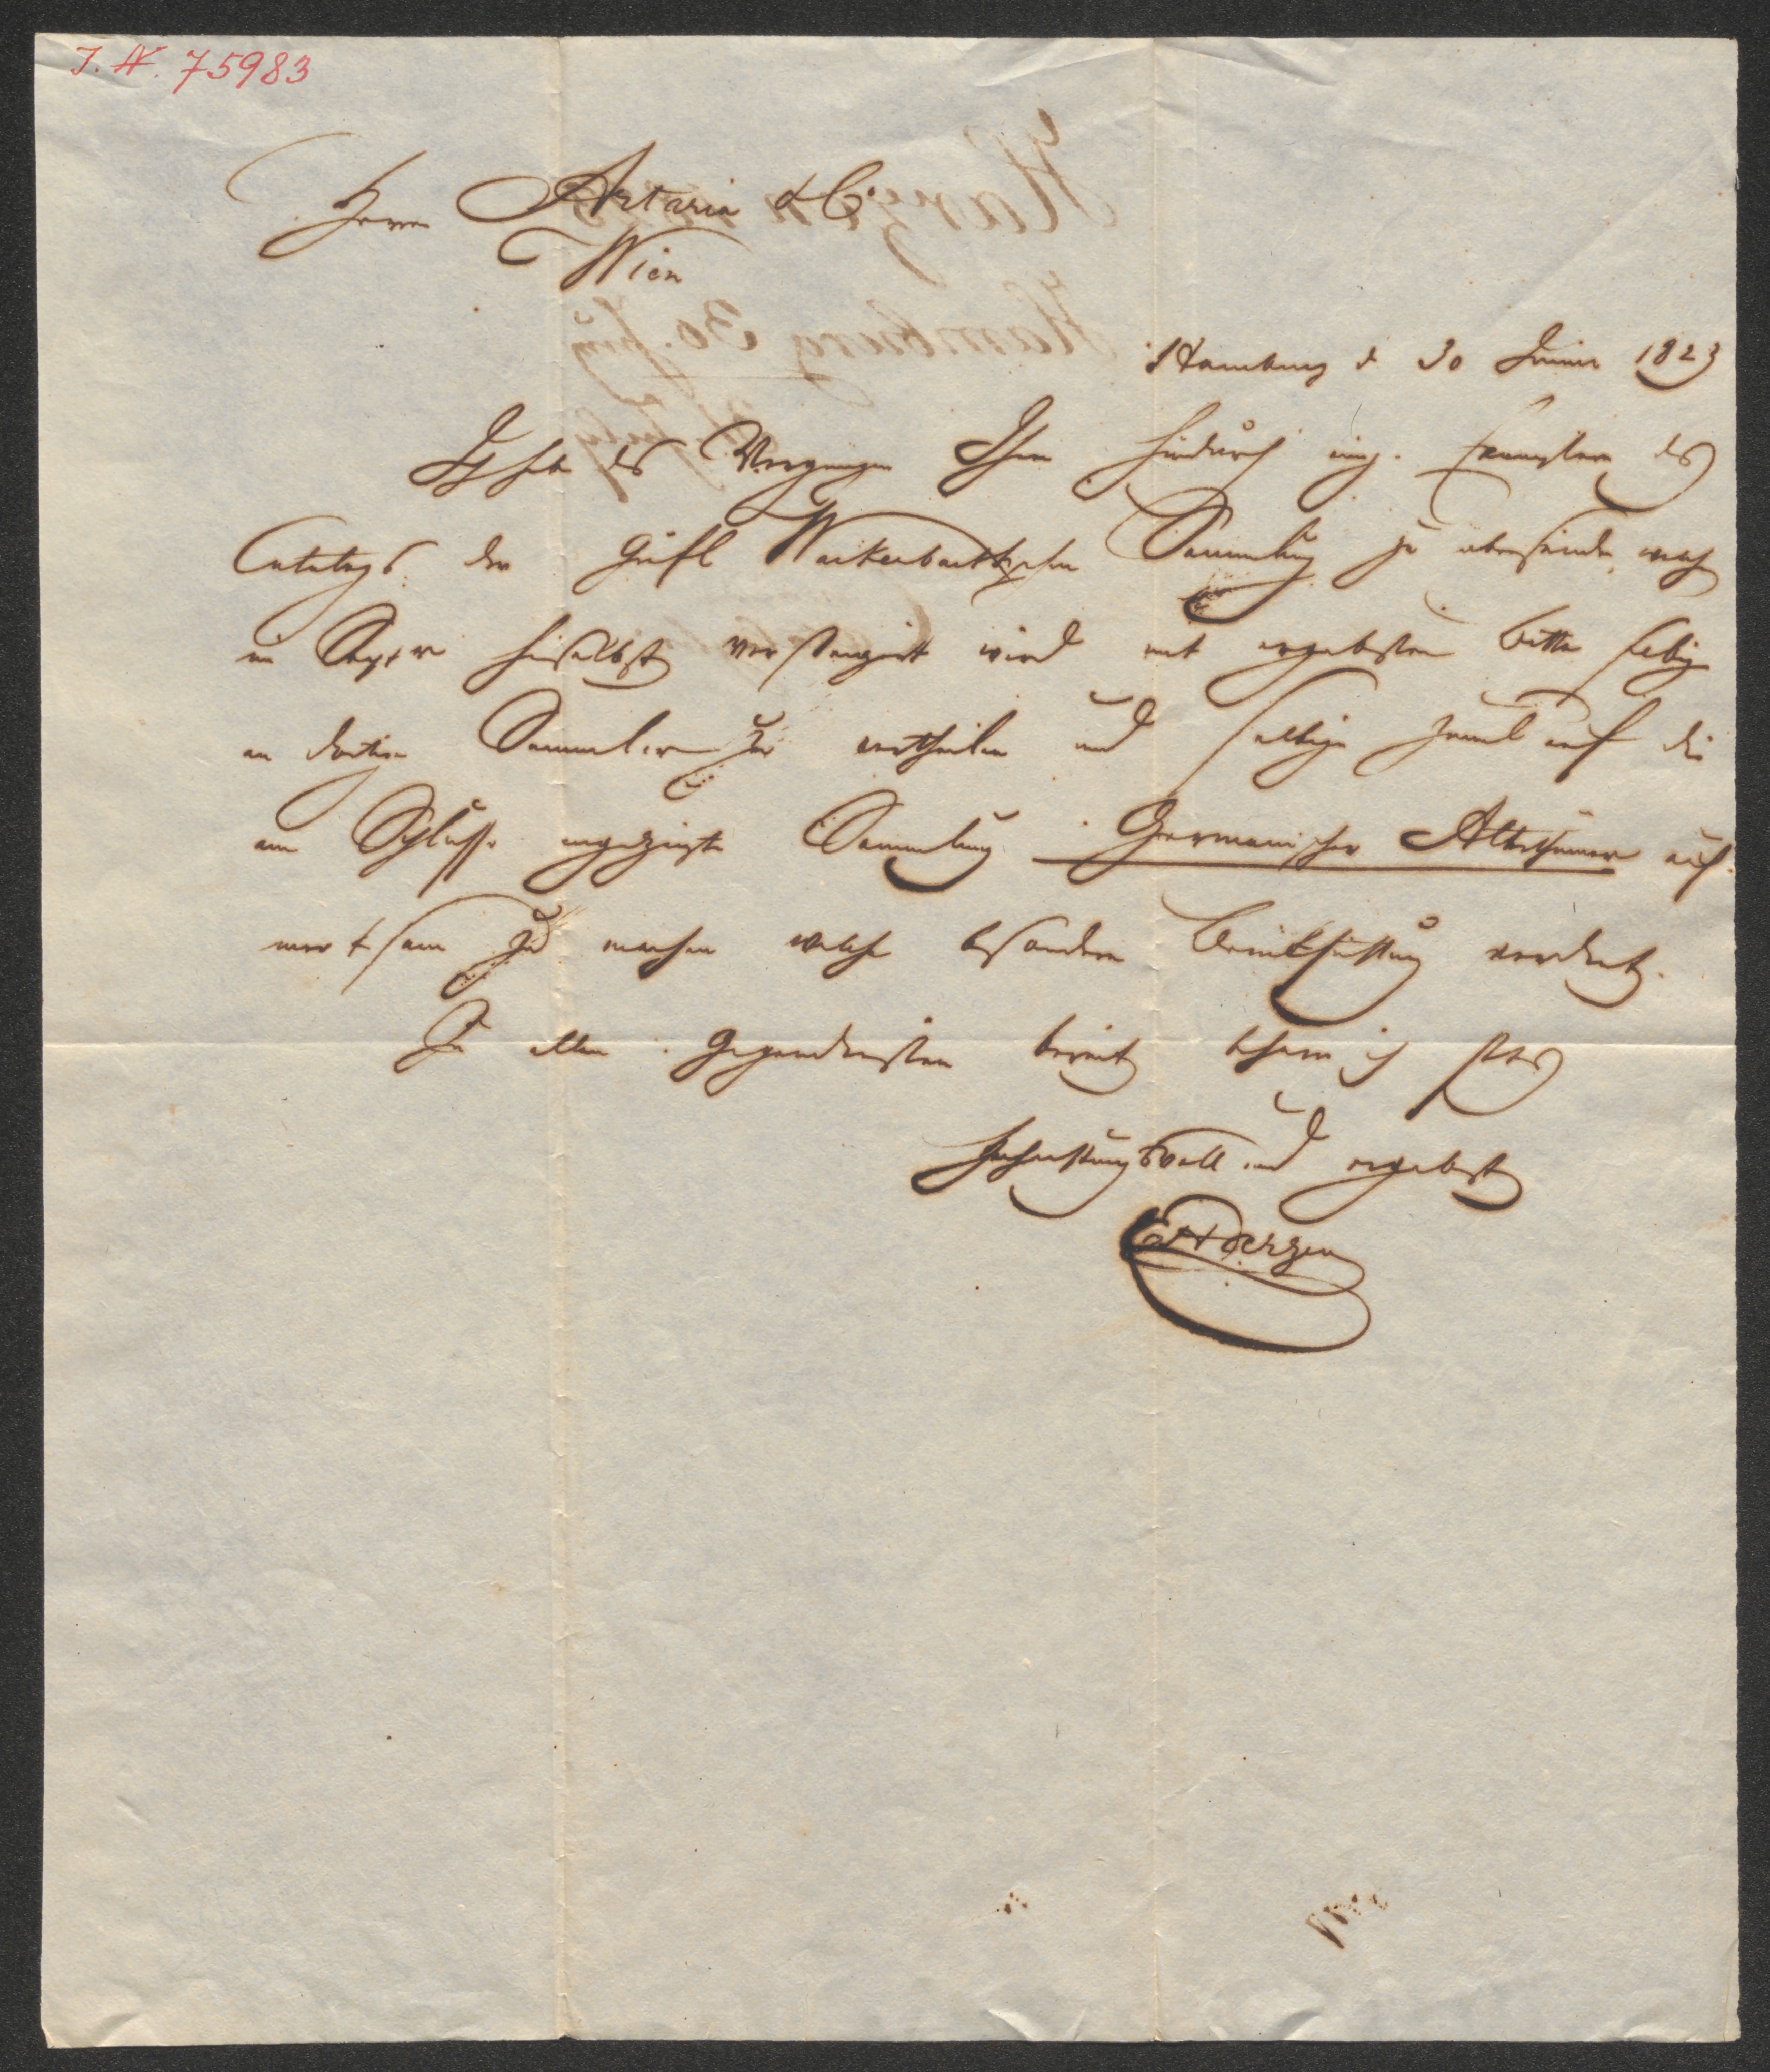 J. N. 75983
Herrn Artaria & Co
Wien
Hamburg d 30 Junius 1823
Ich habe das Vergnügen Ihnen hiedurch einig. Exemplare des
Catalogs der Gräfl Wackerbarthschen Sammlung zu übersenden, welche
im Septr hieselbst versteigert wird mit ergebenster Bitte selbige
an dortige Sammler zu vertheilen und selbige zumal auf die
am Schlusse angezeigte Sammlung Germanischer Alterthümer auf-
merksam zu machen welche besondere Berücksichtigung verdient.
Zu allen Gegendiensten bereit beharre ich stets
Hochachtungsvoll und ergebenst
Harzen